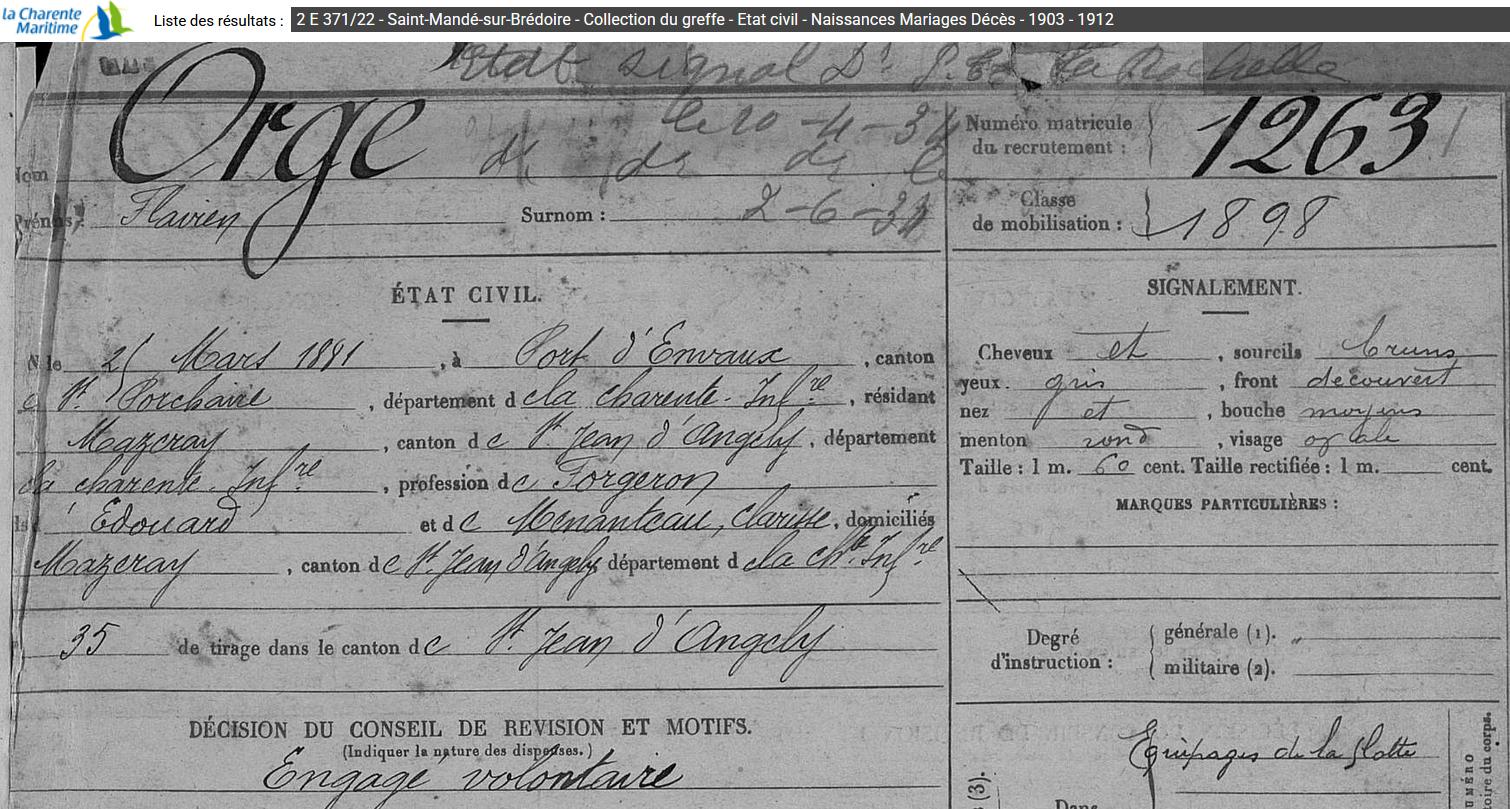 la Charente
Maritime
Liste des résultats : 2 E 371/22 - Saint-Mandé-sur-Brédoire - Collection du greffe - Etat civil - Naissances Mariages Décès - 1903 - 1912
Etabt signal Dt La Rochelle
Nom Orge le 10-4-34
Numéro matricule du recrutement : 1263
Prénoms : Flavien Surnom : 2-6-34
Classe de mobilisation : 1898
ÉTAT CIVIL.
N le Mars 1881, à Port d'Envaux, canton
St Porchaire, département de la charente-Infre, résidant
Mazeray, canton de St Jean d'Angely, département
la charente-Infre, profession de Forgeron
Edouard et de Menanteau, Clarisse, domiciliés
Mazeray, canton de St Jean d'Angely département de la chte Infre
35 de tirage dans le canton de St Jean d'Angely
DÉCISION DU CONSEIL DE REVISION ET MOTIFS.
(Indiquer la nature des dispenses.)
Engagé volontaire
SIGNALEMENT.
Cheveux et, sourcils bruns
yeux gris, front découvert
nez et, bouche moyens
menton rond, visage ovale
Taille : 1 m. 60 cent. Taille rectifiée : 1 m. cent.
MARQUES PARTICULIÈRES :
Degré d'instruction : générale (1).
militaire (2).
Equipages de la flotte
(3).
Dans
NUMÉRO
oire du corps.